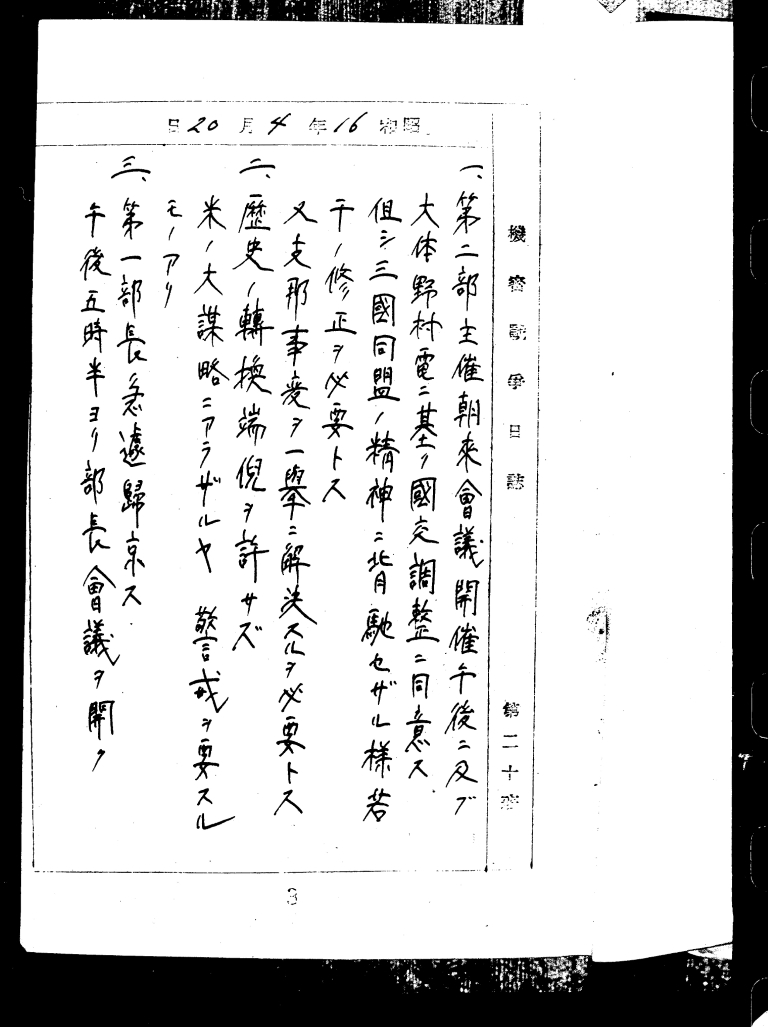 機密戰爭日誌
第二十班
昭和16年4月20日
一、第二部主催朝來會議開催午後ニ及ブ
大体野村電ニ基キ國交調整ニ同意ス
但シ三國同盟ノ精神ニ背馳セザル様若
干ノ修正ヲ必要トス
又支那事変ヲ一擧ニ解決スルヲ必要トス
二、歴史ノ轉換端倪ヲ許サズ
米ノ大謀略ニアラザルヤ 警戒ヲ要スル
モノアリ
三、第一部長急遽歸京ス
午後五時半ヨリ部長會議ヲ開ク
3